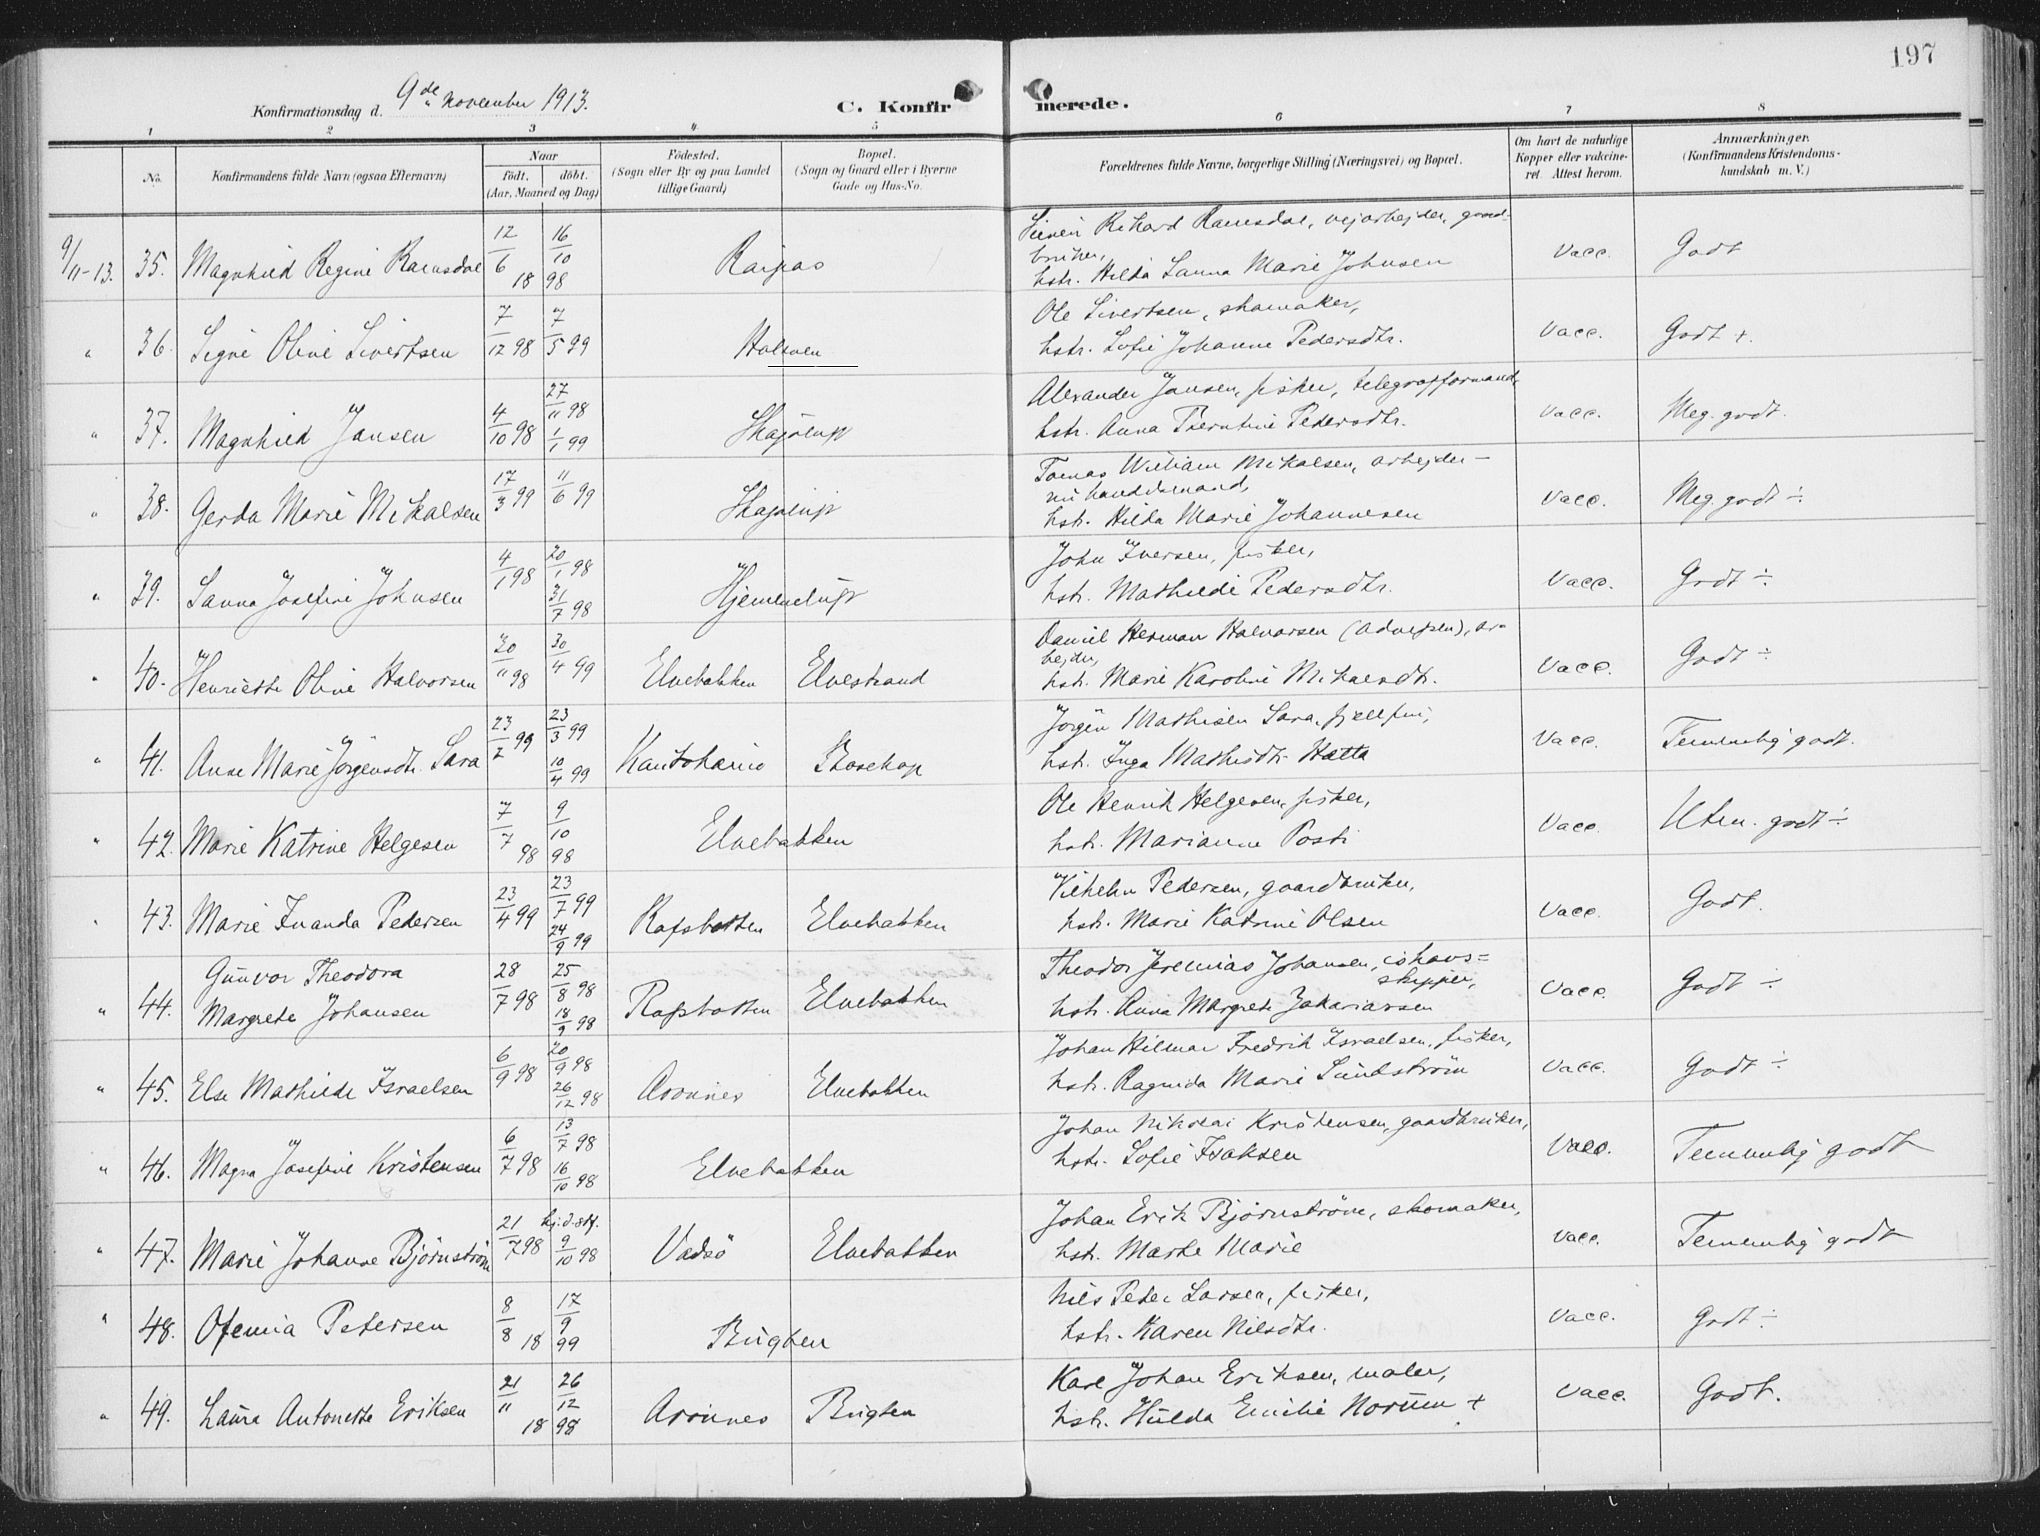 197
Konfirmationsdag d. 9de November 1913.
C. Konfirmerede.
1 2 3 4 5 6 7 8
No.
Konfirmandens fulde Navn (ogsaa Efternavn)
Naar
födt. döbt.
(Aar, Maaned og Dag)
Födested.
(Sogn eller By og paa Landet
tillige Gaard)
Bopæl.
(Sogn og Gaard eller i Byerne
Gade og Hus-No.
Forældrenes fulde Navne, borgerlige Stilling (Næringsvei) og Bopæl.
Om havt de naturlige
Kopper eller vakcine-
ret. Attest herom.
Anmærkninger.
(Konfirmandens Kristendoms-
kundskab m. V.)
9/11-13. 35. Magnhild Regine Ramsdal 12/6 1898 16/10 98 Raipas
Sivert Rikard Ramsdal, vejarbejder, gaard-
bruker,
hstr. Hilda Sanna Marie Johnsen Vacc. Godt
" 36. Signe Oline Sivertsen 7/12 98 7/5 99
Ole Sivertsen, skomaker,
hstr. Sofie Johanne Pedersdtr. Vacc. Godt +.
" 37. Magnhild Jansen 4/10 98 27/11 98 1/1 99 Skajelup
Alexander Jansen, fisker, telegrafformand,
hstr. Anna Berntine Pedersdtr. Vacc. Meg. godt.
" 38. Gerda Marie Mikalsen 17/3 99 11/6 99 Skajelup
Tomas William Mikalsen, arbejder -
hstr. Hilda Marie Johannesen Vacc. Meg. godt ÷
" 39. Sanna Josefine Johnsen 4/1 98 20/1 98 31/7 98 Hjemmeluft
John Iversen, fisker,
hstr. Mathilde Pedersdtr. Vacc. Godt ÷
" 40. Henriette Oline Halvorsen 20/11 98 30/4 99 Elvebakken Elvestrand
Daniel Herman Halvorsen (Advejsen), ar-
bejder,
hstr. Marie Karoline Mikalsdtr. Vacc. Godt ÷
" 41. Anne Marie Jørgensdtr. Sara 23/2 99 23/3 99 10/4 99 Kautokeino Bosekop
Jørgen Mathisen Sara, fjellfin,
hstr. Inga Mathisdtr. Hætta Vacc. Temmelig godt.
" 42. Marie Katrine Helgesen 7/7 98 9/10 98 Elvebakken
Ole Henrik Helgesen, fisker,
hstr. Marianne Posti Vacc. Utm. godt ÷
" 43. Marie Inanda Pedersen 23/4 99 23/7 99 24/9 99 Rafsbotten Elvebakken
Vilhelm Pedersen, gaardbruker,
hstr. Marie Katrine Olsen Vacc. Godt.
" 44. Gunvor Theodora
Margrete Johansen 28/7 98 25/8 98 18/9 98 Rafsbotten Elvebakken
Theodor Jeremias Johansen, ishavs=
skipper,
hstr. Anna Margrete Zakariassen Vacc. Godt ÷
" 45. Else Mathilde Israelsen 6/9 98 20/9 98 26/12 98 Aronnes Elvebakken
Johan Hilmar Fredrik Israelsen, fisker,
hstr. Ragnida Marie Sundström Vacc. Godt ÷
" 46. Magna Josefine Kristensen 6/7 98 13/7 98 16/10 98 Elvebakken
Johan Nikolai Kristensen, gaardbruker,
hstr. Sofie Isaksen Vacc. Temmelig godt
" 47. Marie Johanne Bjørnstrøm 21/7 98 hj.d. st. 9/10 98 Vadsö Elvebakken
Johan Erik Bjørnstrøm, skomaker,
hstr. Marte Marie Vacc. Temmelig godt
" 48. Ofemia Petersen 8/8 18 17/9 99 Bugten
Nils Peder Larsen, fisker,
hstr. Karen Nilsdtr. Vacc. Godt ÷
" 49. Laura Antonette Eriksen 21/11 1898 26/12 98 Aronnes Bugten
Karl Johan Eriksen, maler,
hstr. Hulda Emilie Norum + Vacc. Godt.